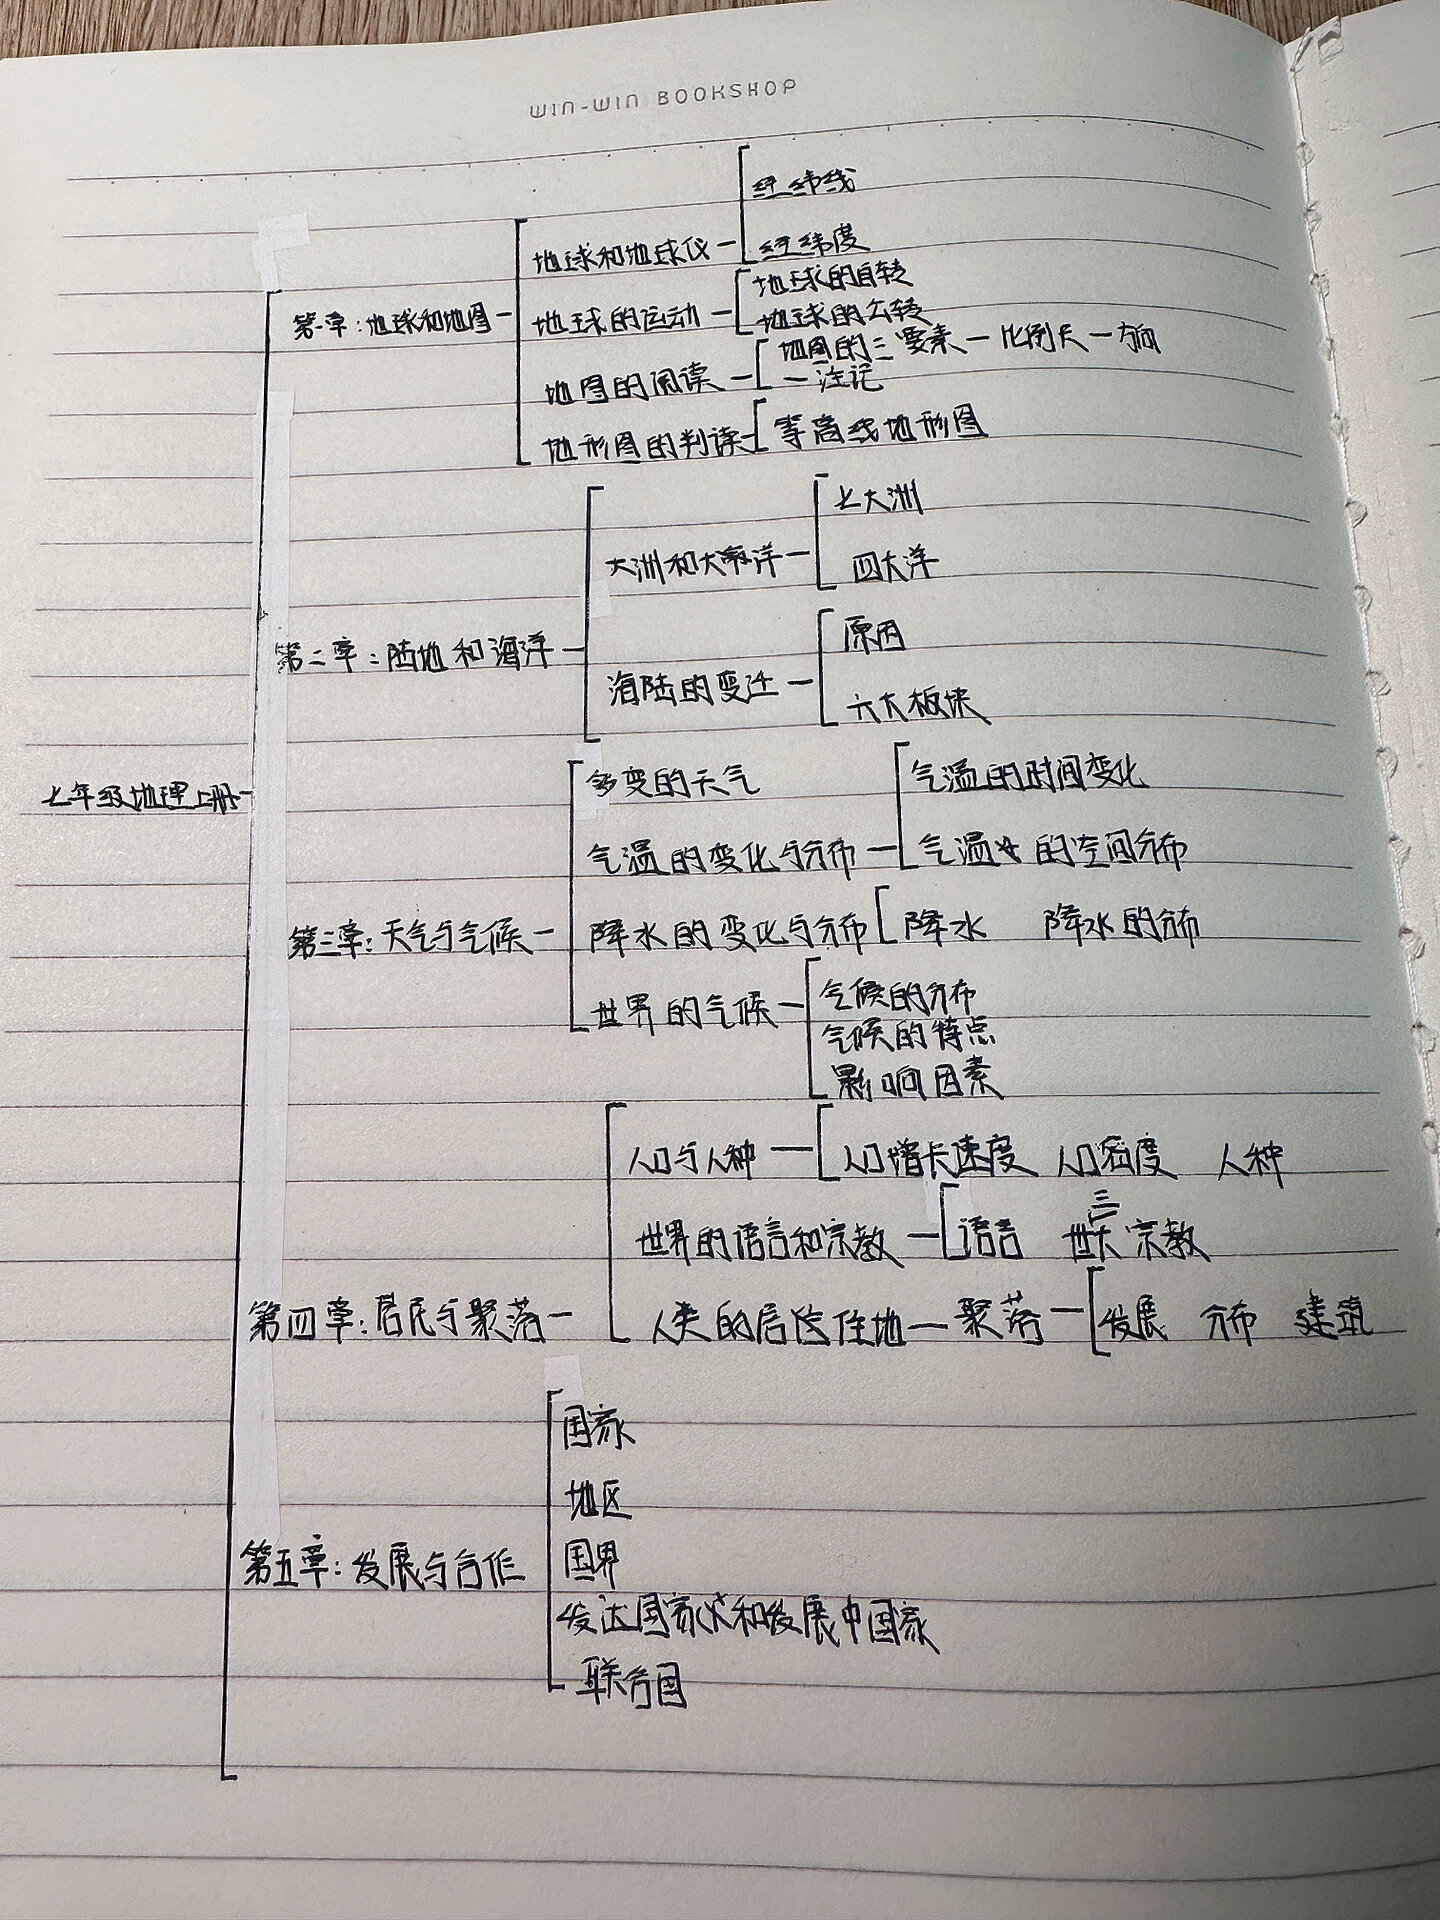 WIN-WIN BOOKSHOP
七年级地理上册
第一章:地球和地图
地球和地球仪
经纬线
经纬度
地球的运动
地球的自转
地球的公转
地图的阅读
地图的三要素一比例尺一方向
一注记
地形图的判读
等高线地形图
第二章:陆地和海洋
大洲和大洋
七大洲
四大洋
海陆的变迁
原因
六大板块
第三章:天气与气候
多变的天气
气温的变化与分布
气温的时间变化
气温的空间分布
降水的变化与分布
降水 降水的分布
世界的气候
气候的分布
气候的特点
影响因素
第四章:居民与聚落
人口与人种
人口增长速度 人口密度 人种
世界的语言和宗教
语言 世三大宗教
人类的居住地一聚落
发展 分布 建筑
第五章:发展与合作
国家
地区
国界
发达国家和发展中国家
联合国